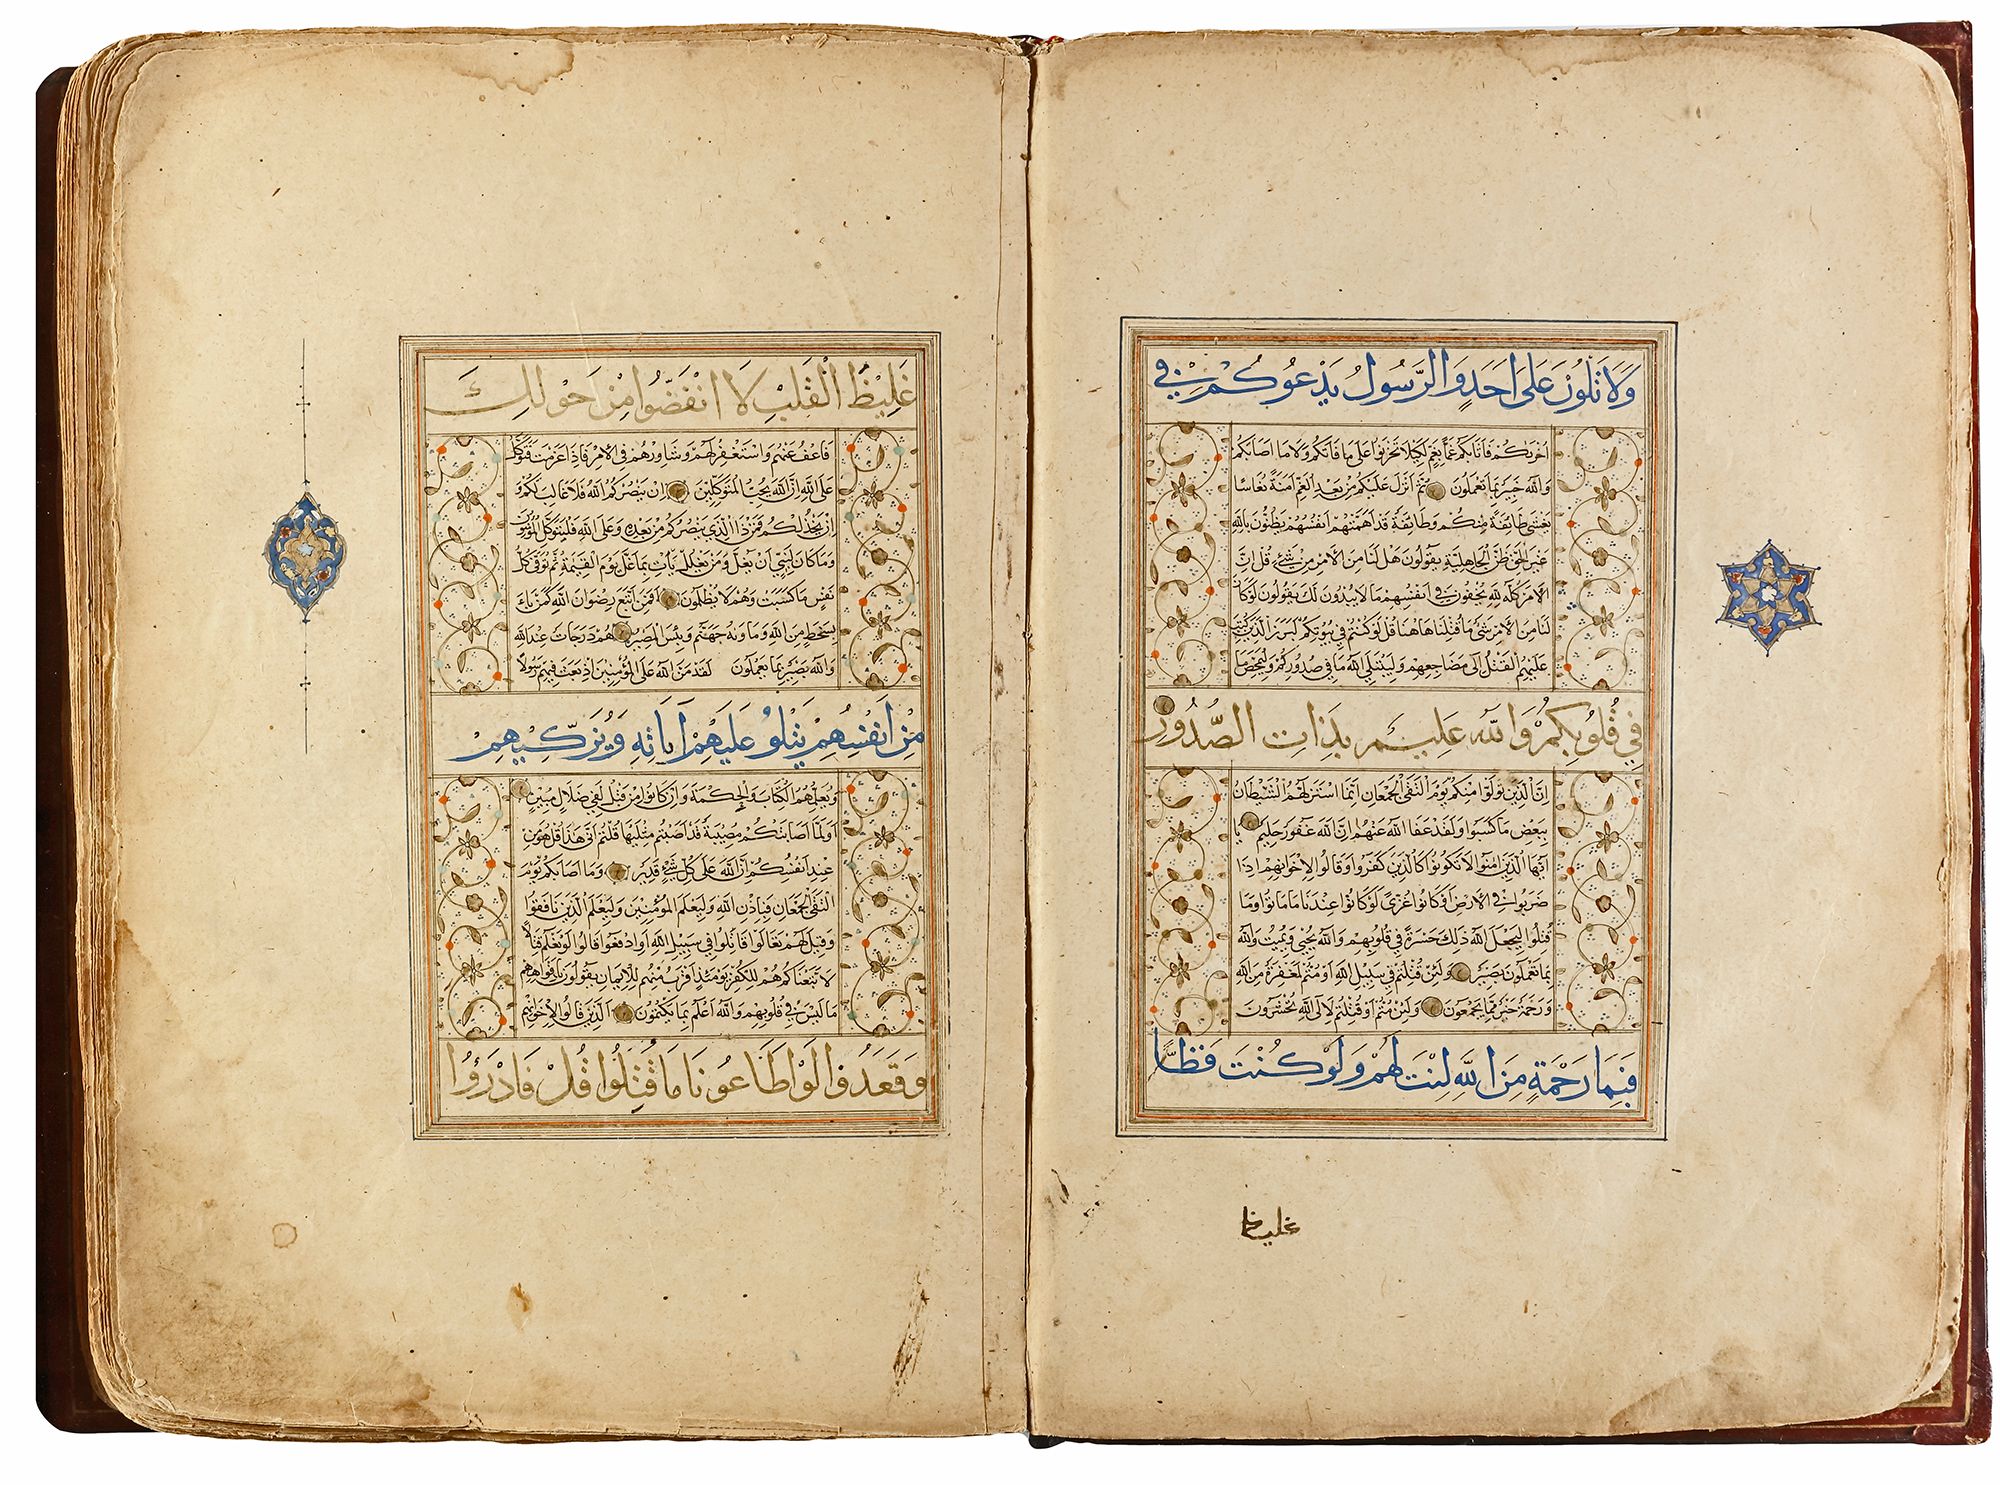 وَلَا تَلْوُنَ عَلَى اَحَدٍ وَالرَّسُولُ يَدْعُوكُمْ فِي
اُخْرٰيكُمْ فَاَثَابَكُمْ غَمًّا بِغَمٍّ لِكَيْلَا تَحْزَنُوا عَلٰى مَا فَاتَكُمْ وَلَا مَا اَصَابَكُمْ
وَاللّٰهُ خَبِيرٌ بِمَا تَعْمَلُونَ ثُمَّ اَنْزَلَ عَلَيْكُمْ مِنْ بَعْدِ الْغَمِّ اَمَنَةً نُعَاسًا
يَغْشٰى طَائِفَةً مِنْكُمْ وَطَائِفَةٌ قَدْ اَهَمَّتْهُمْ اَنْفُسُهُمْ يَظُنُّونَ بِاللّٰهِ
غَيْرَ الْحَقِّ ظَنَّ الْجَاهِلِيَّةِ يَقُولُونَ هَلْ لَنَا مِنَ الْاَمْرِ مِنْ شَيْءٍ قُلْ اِنَّ
الْاَمْرَ كُلَّهُ لِلّٰهِ يُخْفُونَ فِي اَنْفُسِهِمْ مَا لَا يُبْدُونَ لَكَ يَقُولُونَ لَوْ كَانَ
لَنَا مِنَ الْاَمْرِ شَيْءٌ مَا قُتِلْنَا هَاهُنَا قُلْ لَوْ كُنْتُمْ فِي بُيُوتِكُمْ لَبَرَزَ الَّذِينَ كُتِبَ
عَلَيْهِمُ الْقَتْلُ اِلٰى مَضَاجِعِهِمْ وَلِيَبْتَلِيَ اللّٰهُ مَا فِي صُدُورِكُمْ وَلِيُمَحِّصَ مَا
فِي قُلُوبِكُمْ وَاللّٰهُ عَلِيمٌ بِذَاتِ الصُّدُورِ
اِنَّ الَّذِينَ تَوَلَّوْا مِنْكُمْ يَوْمَ الْتَقَى الْجَمْعَانِ اِنَّمَا اسْتَزَلَّهُمُ الشَّيْطَانُ
بِبَعْضِ مَا كَسَبُوا وَلَقَدْ عَفَا اللّٰهُ عَنْهُمْ اِنَّ اللّٰهَ غَفُورٌ حَلِيمٌ يَا
اَيُّهَا الَّذِينَ اٰمَنُوا لَا تَكُونُوا كَالَّذِينَ كَفَرُوا وَقَالُوا لِاِخْوَانِهِمْ اِذَا
ضَرَبُوا فِي الْاَرْضِ اَوْ كَانُوا غُزًّى لَوْ كَانُوا عِنْدَنَا مَا مَاتُوا وَمَا
قُتِلُوا لِيَجْعَلَ اللّٰهُ ذٰلِكَ حَسْرَةً فِي قُلُوبِهِمْ وَاللّٰهُ يُحْيِي وَيُمِيتُ وَاللّٰهُ
بِمَا تَعْمَلُونَ بَصِيرٌ وَلَئِنْ قُتِلْتُمْ فِي سَبِيلِ اللّٰهِ اَوْ مُتُّمْ لَمَغْفِرَةٌ مِنَ اللّٰهِ
وَرَحْمَةٌ خَيْرٌ مِمَّا يَجْمَعُونَ وَلَئِنْ مُتُّمْ اَوْ قُتِلْتُمْ لَاِلَى اللّٰهِ تُحْشَرُونَ
فَبِمَا رَحْمَةٍ مِنَ اللّٰهِ لِنْتَ لَهُمْ وَلَوْ كُنْتَ فَظًّا
غليظا
غَلِيظَ الْقَلْبِ لَا انْفَضُّوا مِنْ حَوْلِكَ
فَاعْفُ عَنْهُمْ وَاسْتَغْفِرْ لَهُمْ وَشَاوِرْهُمْ فِي الْاَمْرِ فَاِذَا عَزَمْتَ فَتَوَكَّلْ
عَلَى اللّٰهِ اِنَّ اللّٰهَ يُحِبُّ الْمُتَوَكِّلِينَ اِنْ يَنْصُرْكُمُ اللّٰهُ فَلَا غَالِبَ لَكُمْ وَ
اِنْ يَخْذُلْكُمْ فَمَنْ ذَا الَّذِي يَنْصُرُكُمْ مِنْ بَعْدِهِ وَعَلَى اللّٰهِ فَلْيَتَوَكَّلِ الْمُؤْمِنُونَ
وَمَا كَانَ لِنَبِيٍّ اَنْ يَغُلَّ وَمَنْ يَغْلُلْ يَأْتِ بِمَا غَلَّ يَوْمَ الْقِيٰمَةِ ثُمَّ تُوَفّٰى كُلُّ
نَفْسٍ مَا كَسَبَتْ وَهُمْ لَا يُظْلَمُونَ اَفَمَنِ اتَّبَعَ رِضْوَانَ اللّٰهِ كَمَنْ بَاءَ
بِسَخَطٍ مِنَ اللّٰهِ وَمَأْوٰيهُ جَهَنَّمُ وَبِئْسَ الْمَصِيرُ هُمْ دَرَجَاتٌ عِنْدَ اللّٰهِ
وَاللّٰهُ بَصِيرٌ بِمَا يَعْمَلُونَ لَقَدْ مَنَّ اللّٰهُ عَلَى الْمُؤْمِنِينَ اِذْ بَعَثَ فِيهِمْ رَسُولًا
مِنْ اَنْفُسِهِمْ يَتْلُو عَلَيْهِمْ اٰيَاتِهِ وَيُزَكِّيهِمْ
وَيُعَلِّمُهُمُ الْكِتَابَ وَالْحِكْمَةَ وَاِنْ كَانُوا مِنْ قَبْلُ لَفِي ضَلَالٍ مُبِينٍ
اَوَلَمَّا اَصَابَتْكُمْ مُصِيبَةٌ قَدْ اَصَبْتُمْ مِثْلَيْهَا قُلْتُمْ اَنّٰى هٰذَا قُلْ هُوَ مِنْ
عِنْدِ اَنْفُسِكُمْ اِنَّ اللّٰهَ عَلٰى كُلِّ شَيْءٍ قَدِيرٌ وَمَا اَصَابَكُمْ يَوْمَ
الْتَقَى الْجَمْعَانِ فَبِاِذْنِ اللّٰهِ وَلِيَعْلَمَ الْمُؤْمِنِينَ وَلِيَعْلَمَ الَّذِينَ نَافَقُوا
وَقِيلَ لَهُمْ تَعَالَوْا قَاتِلُوا فِي سَبِيلِ اللّٰهِ اَوِ ادْفَعُوا قَالُوا لَوْ نَعْلَمُ قِتَالًا
لَاتَّبَعْنَاكُمْ هُمْ لِلْكُفْرِ يَوْمَئِذٍ اَقْرَبُ مِنْهُمْ لِلْاِيمَانِ يَقُولُونَ بِاَفْوَاهِهِمْ
مَا لَيْسَ فِي قُلُوبِهِمْ وَاللّٰهُ اَعْلَمُ بِمَا يَكْتُمُونَ الَّذِينَ قَالُوا لِاِخْوَانِهِمْ
وَقَعَدُوا لَوْ اَطَاعُونَا مَا قُتِلُوا قُلْ فَادْرَؤُا